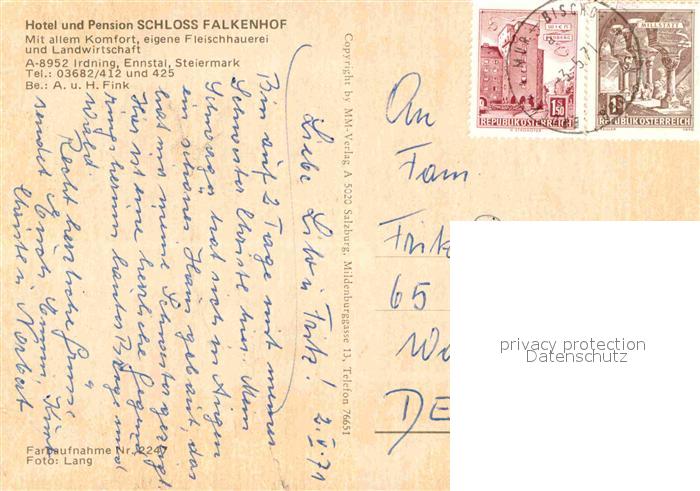 Hotel und Pension SCHLOSS FALKENHOF
Mit allem Komfort, eigene Fleischhauerei
und Landwirtschaft
A-8952 Irdning, Ennstal, Steiermark
Tel.: 03682/412 und 425
Be.: A. u. H. Fink
2. V. 71
Liebe Fritz!
Bin auf 2 Tage mit meiner
Schwester Christe hier. Mein
Schwager hat sich in Aigen
ein schönes Haus gebaut, das
hat mir meine Schwester gezeigt.
Hier ist eine herrliche Gegend
rings herum lauter Berge und
Wald.
Recht herzliche Grüsse
sendet Euch
Norbert
Farbaufnahme Nr. 2247
Foto: Lang
Copyright by MM-Verlag A 5020 Salzburg, Mildenburggasse 13, Telefon 76651
An
Fam.
Fritz
65
DE
1.50
REPUBLIK ÖSTERREICH
MILLSTATT
REPUBLIK ÖSTERREICH
BISCHO
5.71
privacy protection
Datenschutz